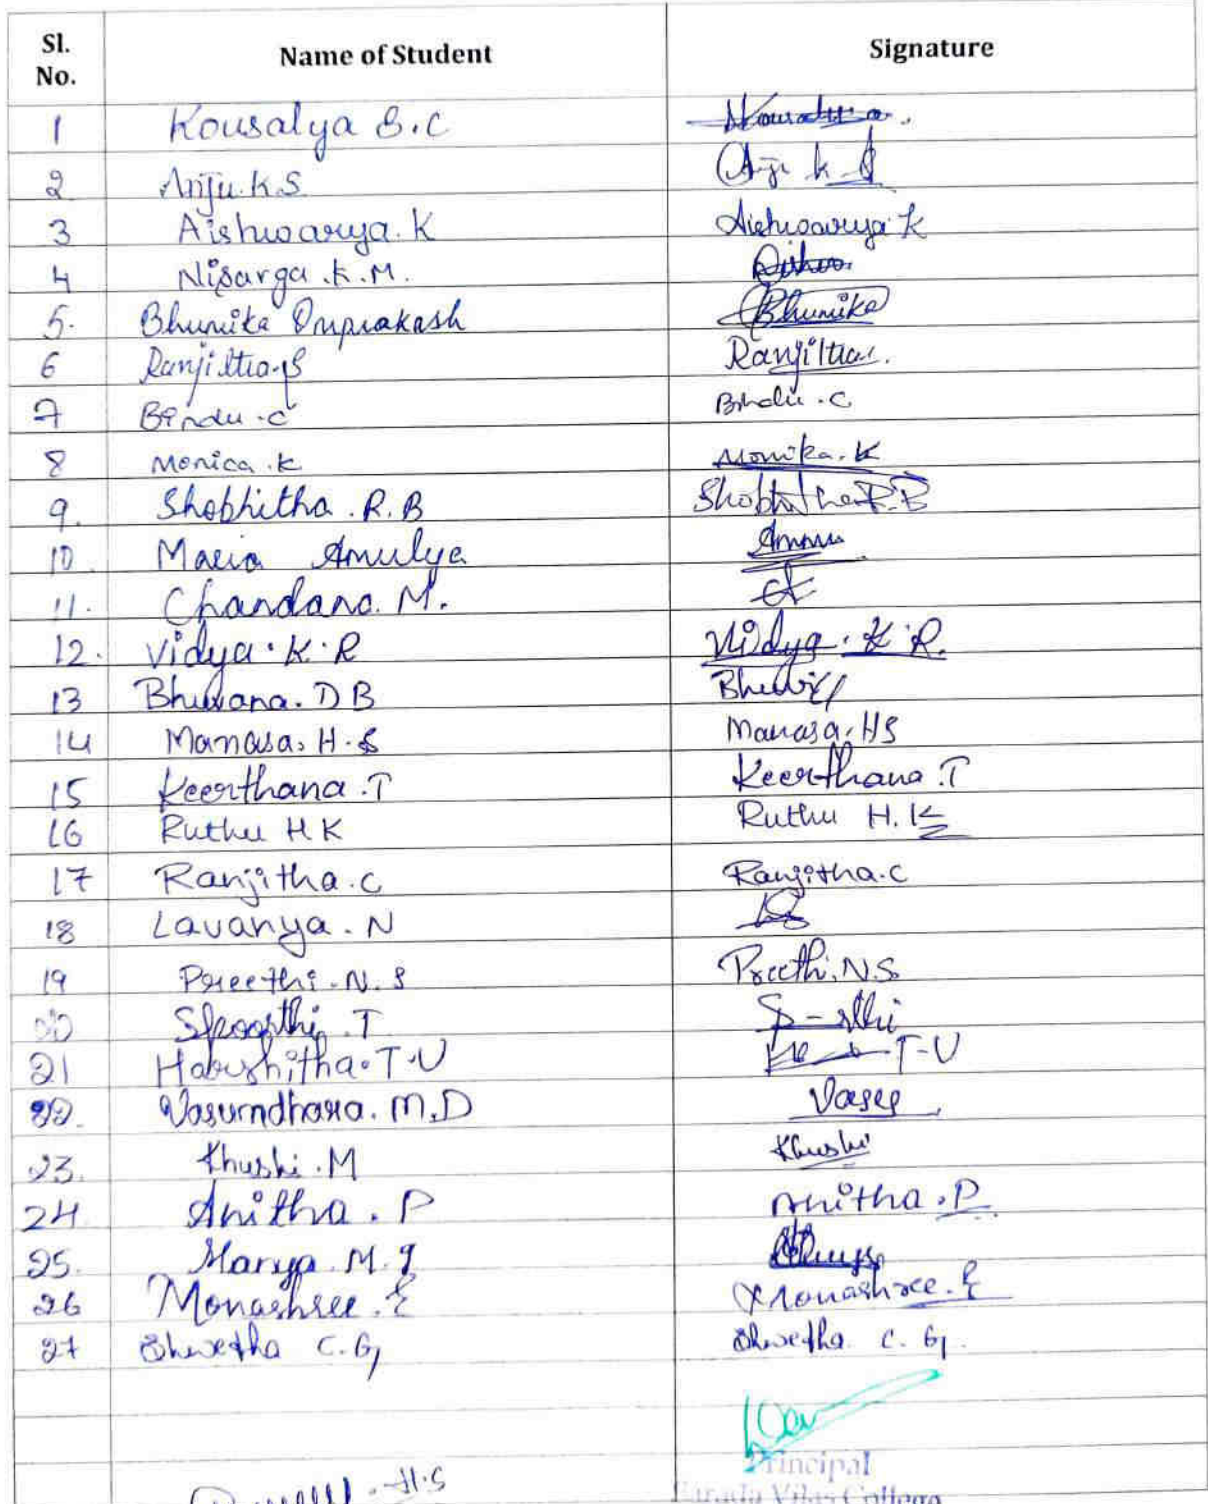 Sl. No. Name of Student Signature
1 Kousalya S.C Kousalya.
2 Anju.K.S Anju K S
3 Aishwarya.K Aishwarya K
4 Nisarga.K.M.
5. Bhumika Omprakash Bhumika
6 Ranjitha.S Ranjitha.
7 Bindu.C Bindu.C
8 Monica.K Monika.K
9. Shobhitha.R.B Shobhitha R.B
10 Maria Amulya Ammu
11. Chandana.M.
12. Vidya.K.R Vidya.K.R.
13 Bhuvana.D B
14 Manasa.H.S Manasa.HS
15 Keerthana.T Keerthana.T
16 Ruthu H K Ruthu H.K
17 Ranjitha.C Ranjitha.C
18 Lavanya.N
19 Preethi.N.S Preethi.N.S
20 Spoorthi.T
21 Harshitha.T.U T-U
22. Vasundhara.M.D
23. Khushi.M Khushi
24 Anitha.P Anitha.P
25. Marya.M.J
26 Monashree.E Monashree.E
27 Shwetha C.G Shwetha C.G.
Principal
H.S Sarada Vilas College